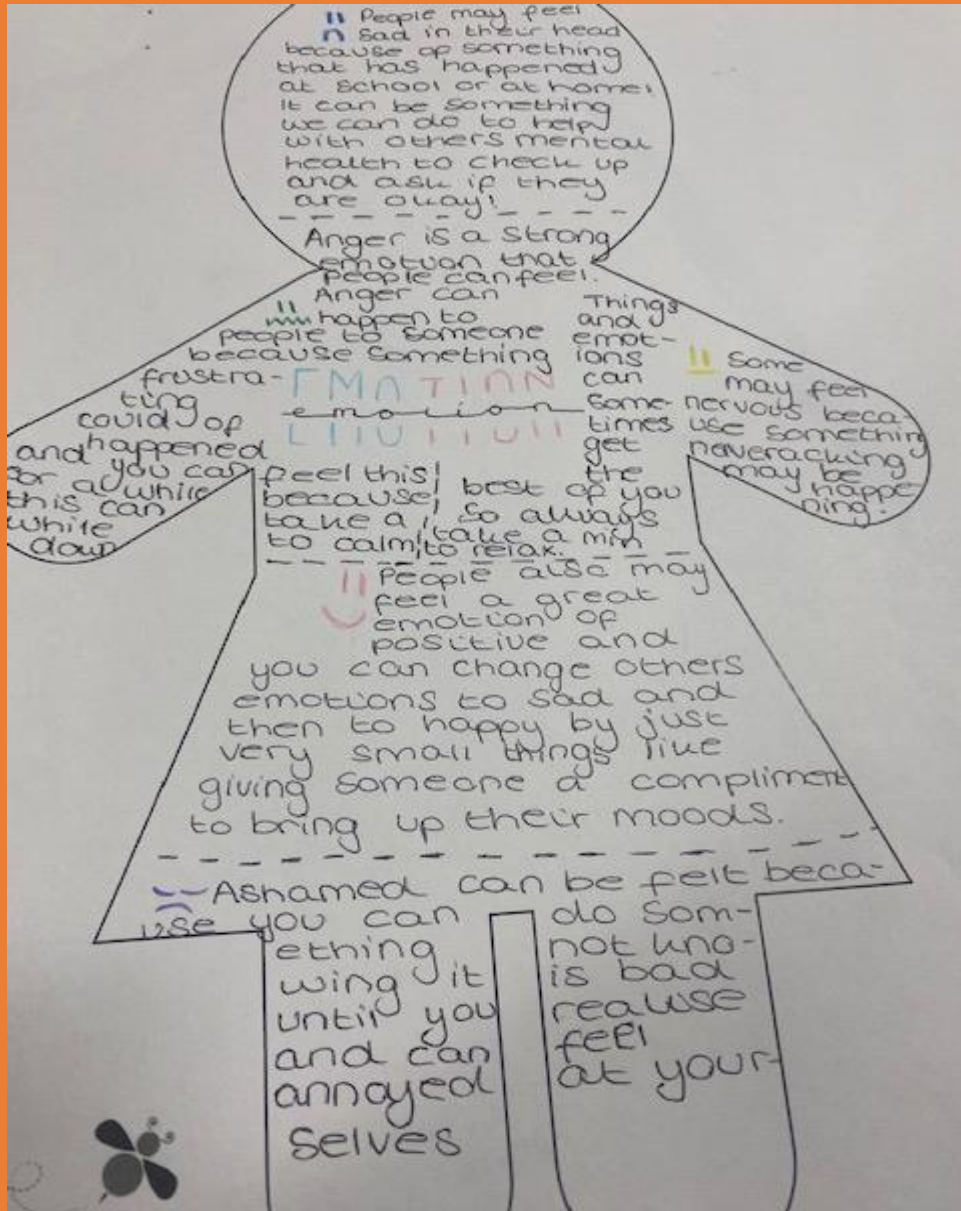 People may feel
sad in their head
because of something
that has happened
at school or at home!
It can be something
we can do to help
with others mental
health to check up
and ask if they
are okay!
Anger is a strong
emotion that
people can feel.
Anger can
happen to
people to someone
because something
frustra-
ting
could of
happened
and you can feel this!
for a while because!
this can take a
while to calm
down
EMOTION
emotion
Things
and
emot-
ions
can
some-
times
get
the
best of you
so always
take a min
to relax.
Some
may feel
nervous beca-
use something
neveracking
may be
happe
ning!
People also may
feel a great
emotion of
positive and
you can change others
emotions to sad and
then to happy by just
very small things like
giving someone a compliment
to bring up their moods.
Ashamed can be felt beca-
use you can do som-
ething not kno-
wing it is bad
until you realise
and can feel
annoyed at your-
selves